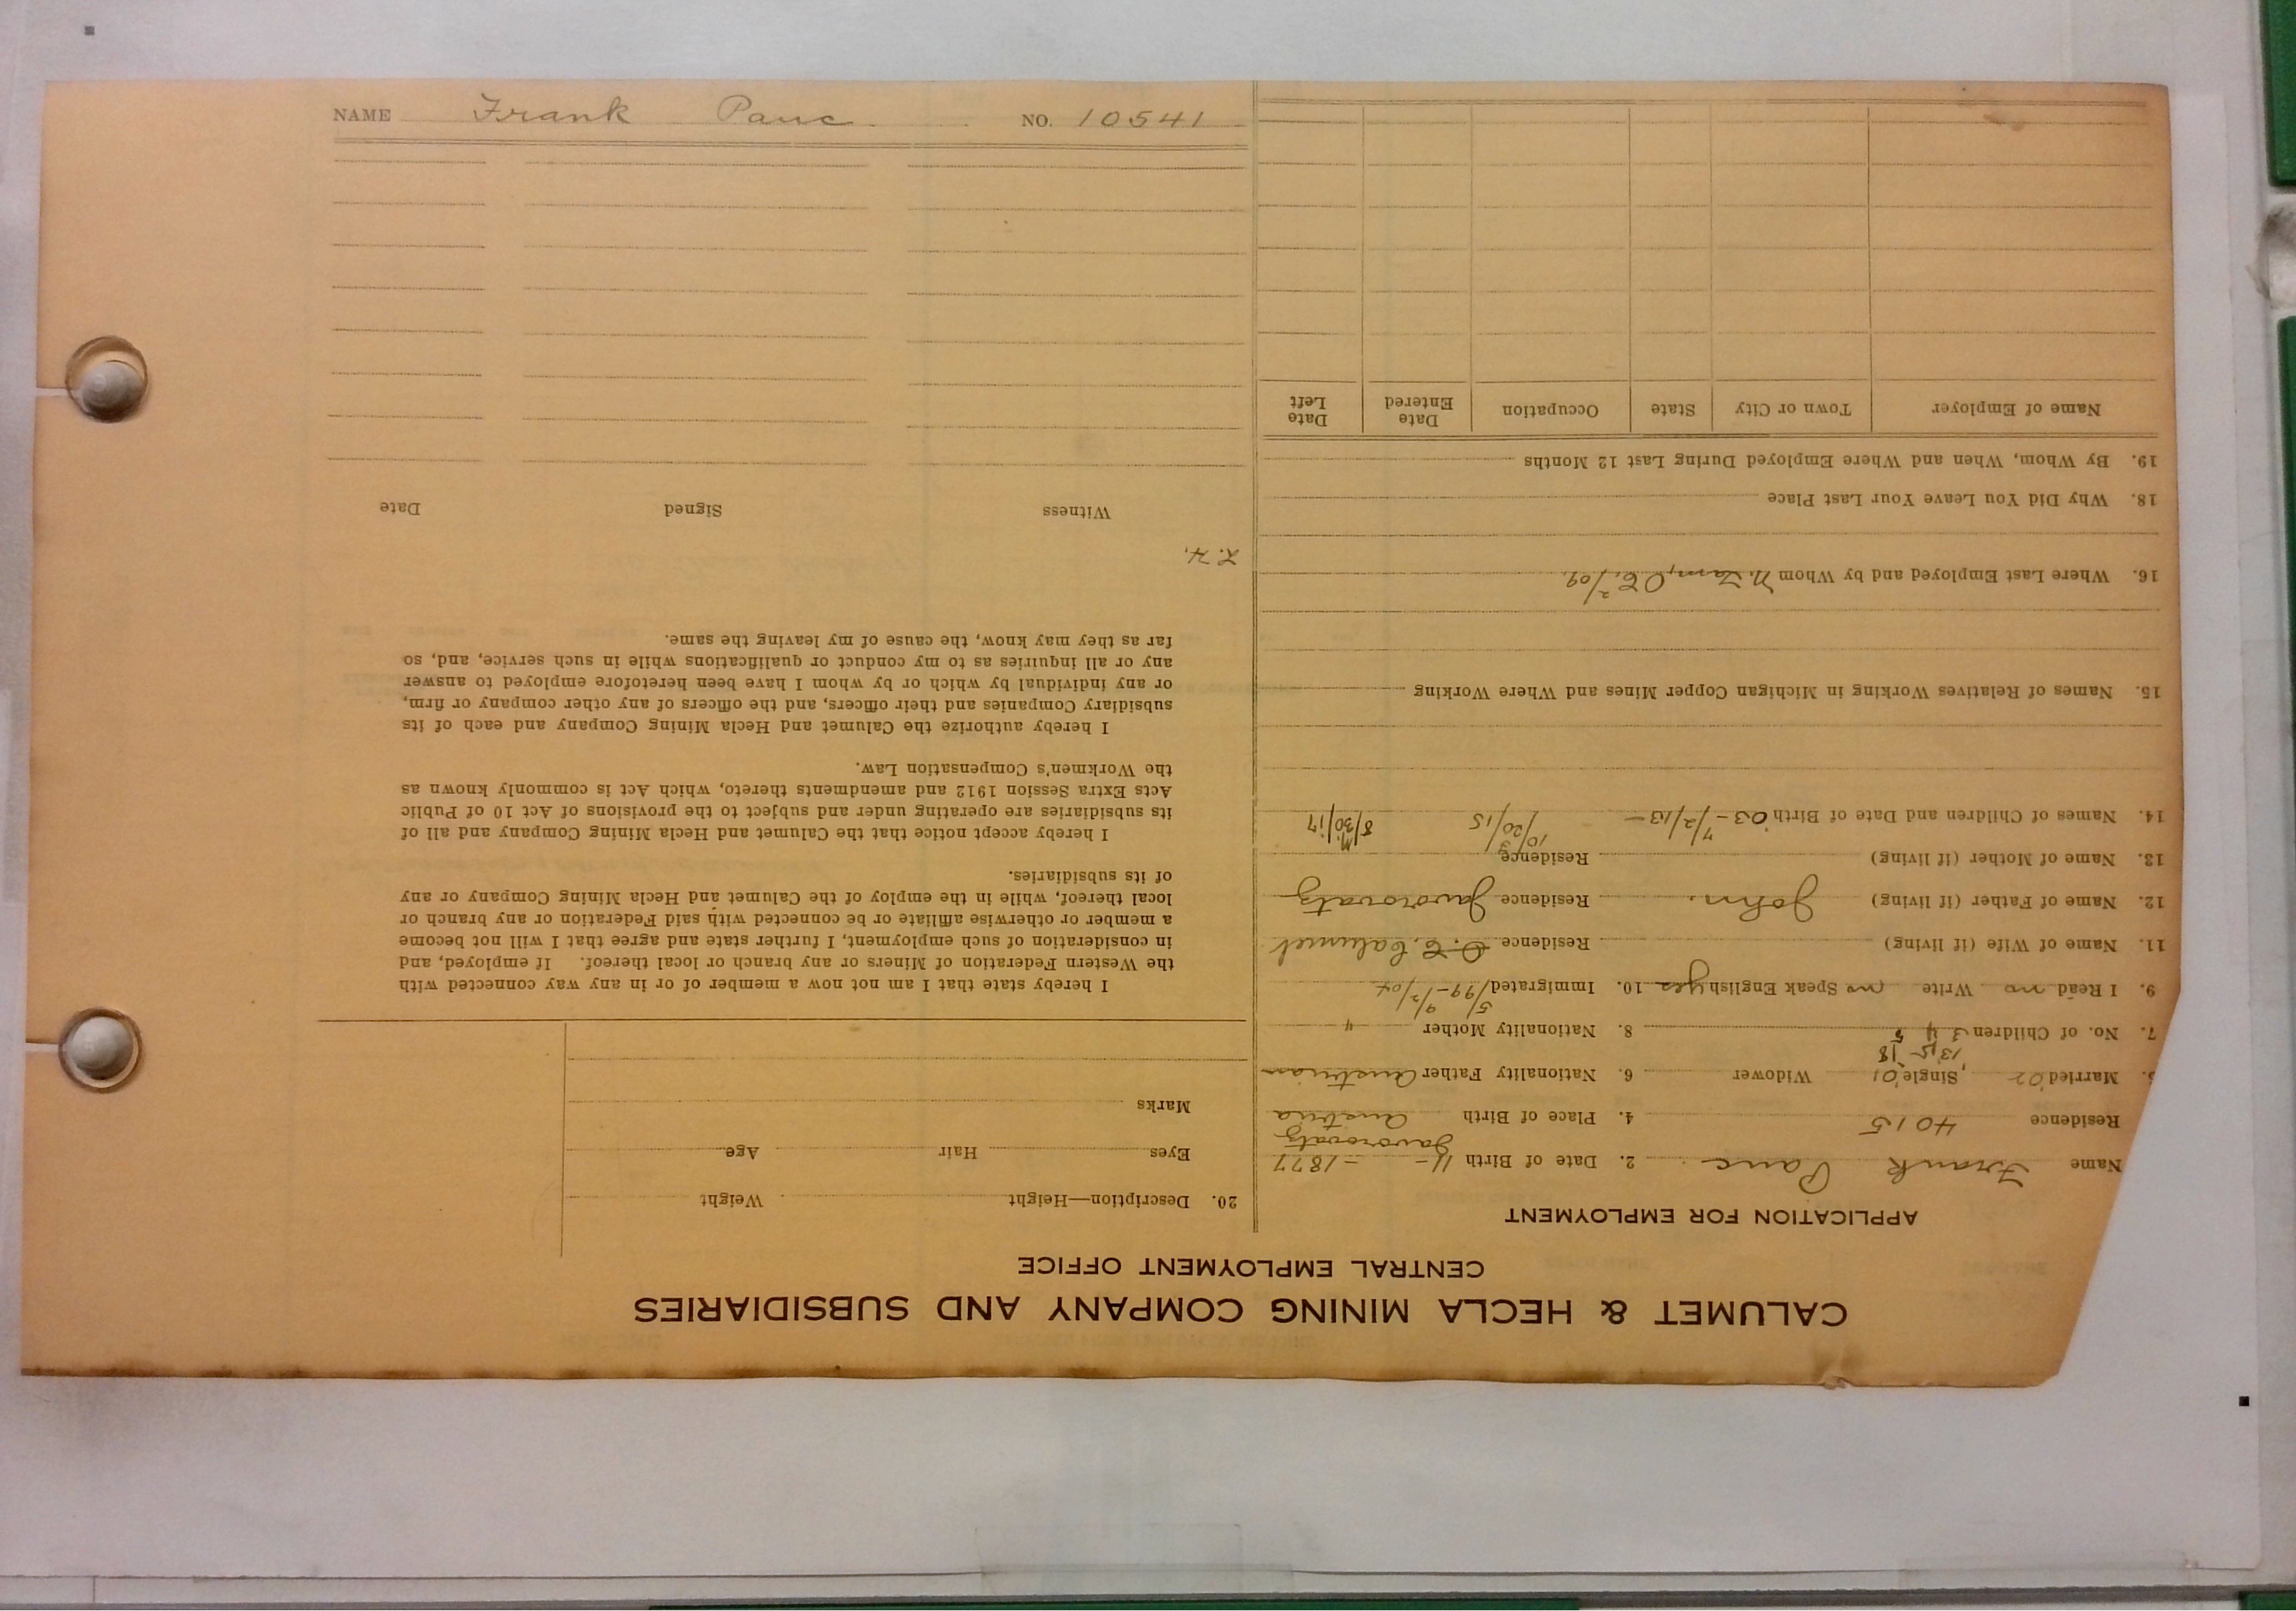 CALUMET & HECLA MINING COMPANY AND SUBSIDIARIES
CENTRAL EMPLOYMENT OFFICE
APPLICATION FOR EMPLOYMENT
Name Frank Panc 2. Date of Birth 11 - - 1877
Javorovatz
Residence 4015 4. Place of Birth Austria
5. Married '02 Single '01 Widower 6. Nationality Father Austrian
13, 15 - 18
7. No. of Children 3 4 5 8. Nationality Mother "
9. I Read no Write no Speak English yes 10. Immigrated 5/99 - 9/2/04
11. Name of Wife (if living) Residence O. C. Calumet
12. Name of Father (if living) John. Residence Javorovatz
13. Name of Mother (if living) Residence
14. Names of Children and Date of Birth '03 - 7/2/13 - 10/20/15 8/30/17
15. Names of Relatives Working in Michigan Copper Mines and Where Working
16. Where Last Employed and by Whom N. Tam, O C. 2/09.
18. Why Did You Leave Your Last Place
19. By Whom, When and Where Employed During Last 12 Months
Name of Employer Town or City State Occupation Date Entered Date Left
20. Description—Height Weight
Eyes Hair Age
Marks
I hereby state that I am not now a member of or in any way connected with
the Western Federation of Miners or any branch or local thereof. If employed, and
in consideration of such employment, I further state and agree that I will not become
a member or otherwise affiliate or be connected with said Federation or any branch or
local thereof, while in the employ of the Calumet and Hecla Mining Company or any
of its subsidiaries.
I hereby accept notice that the Calumet and Hecla Mining Company and all of
its subsidiaries are operating under and subject to the provisions of Act 10 of Public
Acts Extra Session 1912 and amendments thereto, which Act is commonly known as
the Workmen's Compensation Law.
I hereby authorize the Calumet and Hecla Mining Company and each of its
subsidiary Companies and their officers, and the officers of any other company or firm,
or any individual by which or by whom I have been heretofore employed to answer
any or all inquiries as to my conduct or qualifications while in such service, and, so
far as they may know, the cause of my leaving the same.
Z. H.
Witness Signed Date
NAME Frank Panc NO. 10541